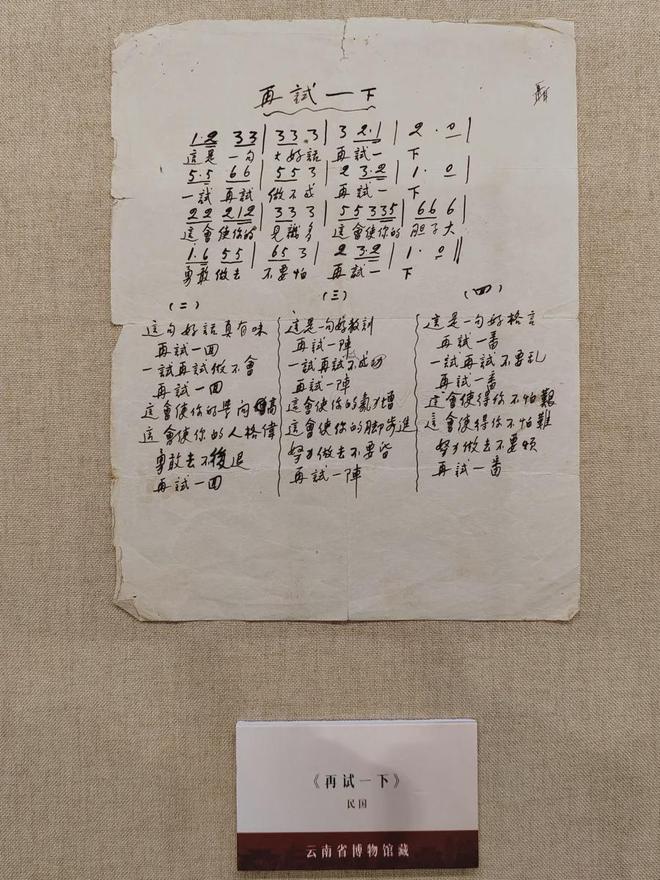 再試一下
1·2 33|33 3|3 2·1|2 · 0|
這是一句大好話再試一下
5·5 66|55 3|2 3·2|1 · 0|
一試再試做不成再試一下
22 212|33 3|55 335|66 6|
這會使你的見識多這會使你的胆子大
1·6 55|65 3|2 3·2|1 · 0‖
勇敢做去不要怕再試一下
(二)
這句好話真有味
再試一回
一試再試做不會
再試一回
這會使你的學问高
這會使你的人格偉
勇敢去不後退
再試一回
(三)
這是一句好教訓
再試一陣
一試再試不成功
再試一陣
這會使你的氣力增
這會使你的脚步進
努力做去不要
再試一陣
(四)
這是一句好格言
再試一番
一試再試不要乱
再試一番
這會使得你不怕艱
這會使得你不怕難
努力做去不要煩
再試一番
《再试一下》
民国
云南省博物馆藏